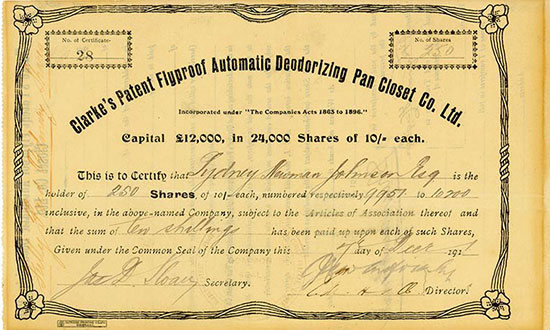 No. of Certificate
28
No. of Shares
250
Clarke's Patent Flyproof Automatic Deodorizing Pan Closet Co. Ltd.
Incorporated under "The Companies Acts 1863 to 1896."
Capital £12,000, in 24,000 Shares of 10/- each.
This is to Certify that Sydney Newman Johnson Esq is the
holder of 250 Shares, of 10/- each, numbered respectively 9951 to 10200
inclusive, in the above-named Company, subject to the Articles of Association thereof and
that the sum of Ten shillings has been paid up upon each of such Shares,
Given under the Common Seal of the Company this 7 day of Decr 191
Secretary.
Director.